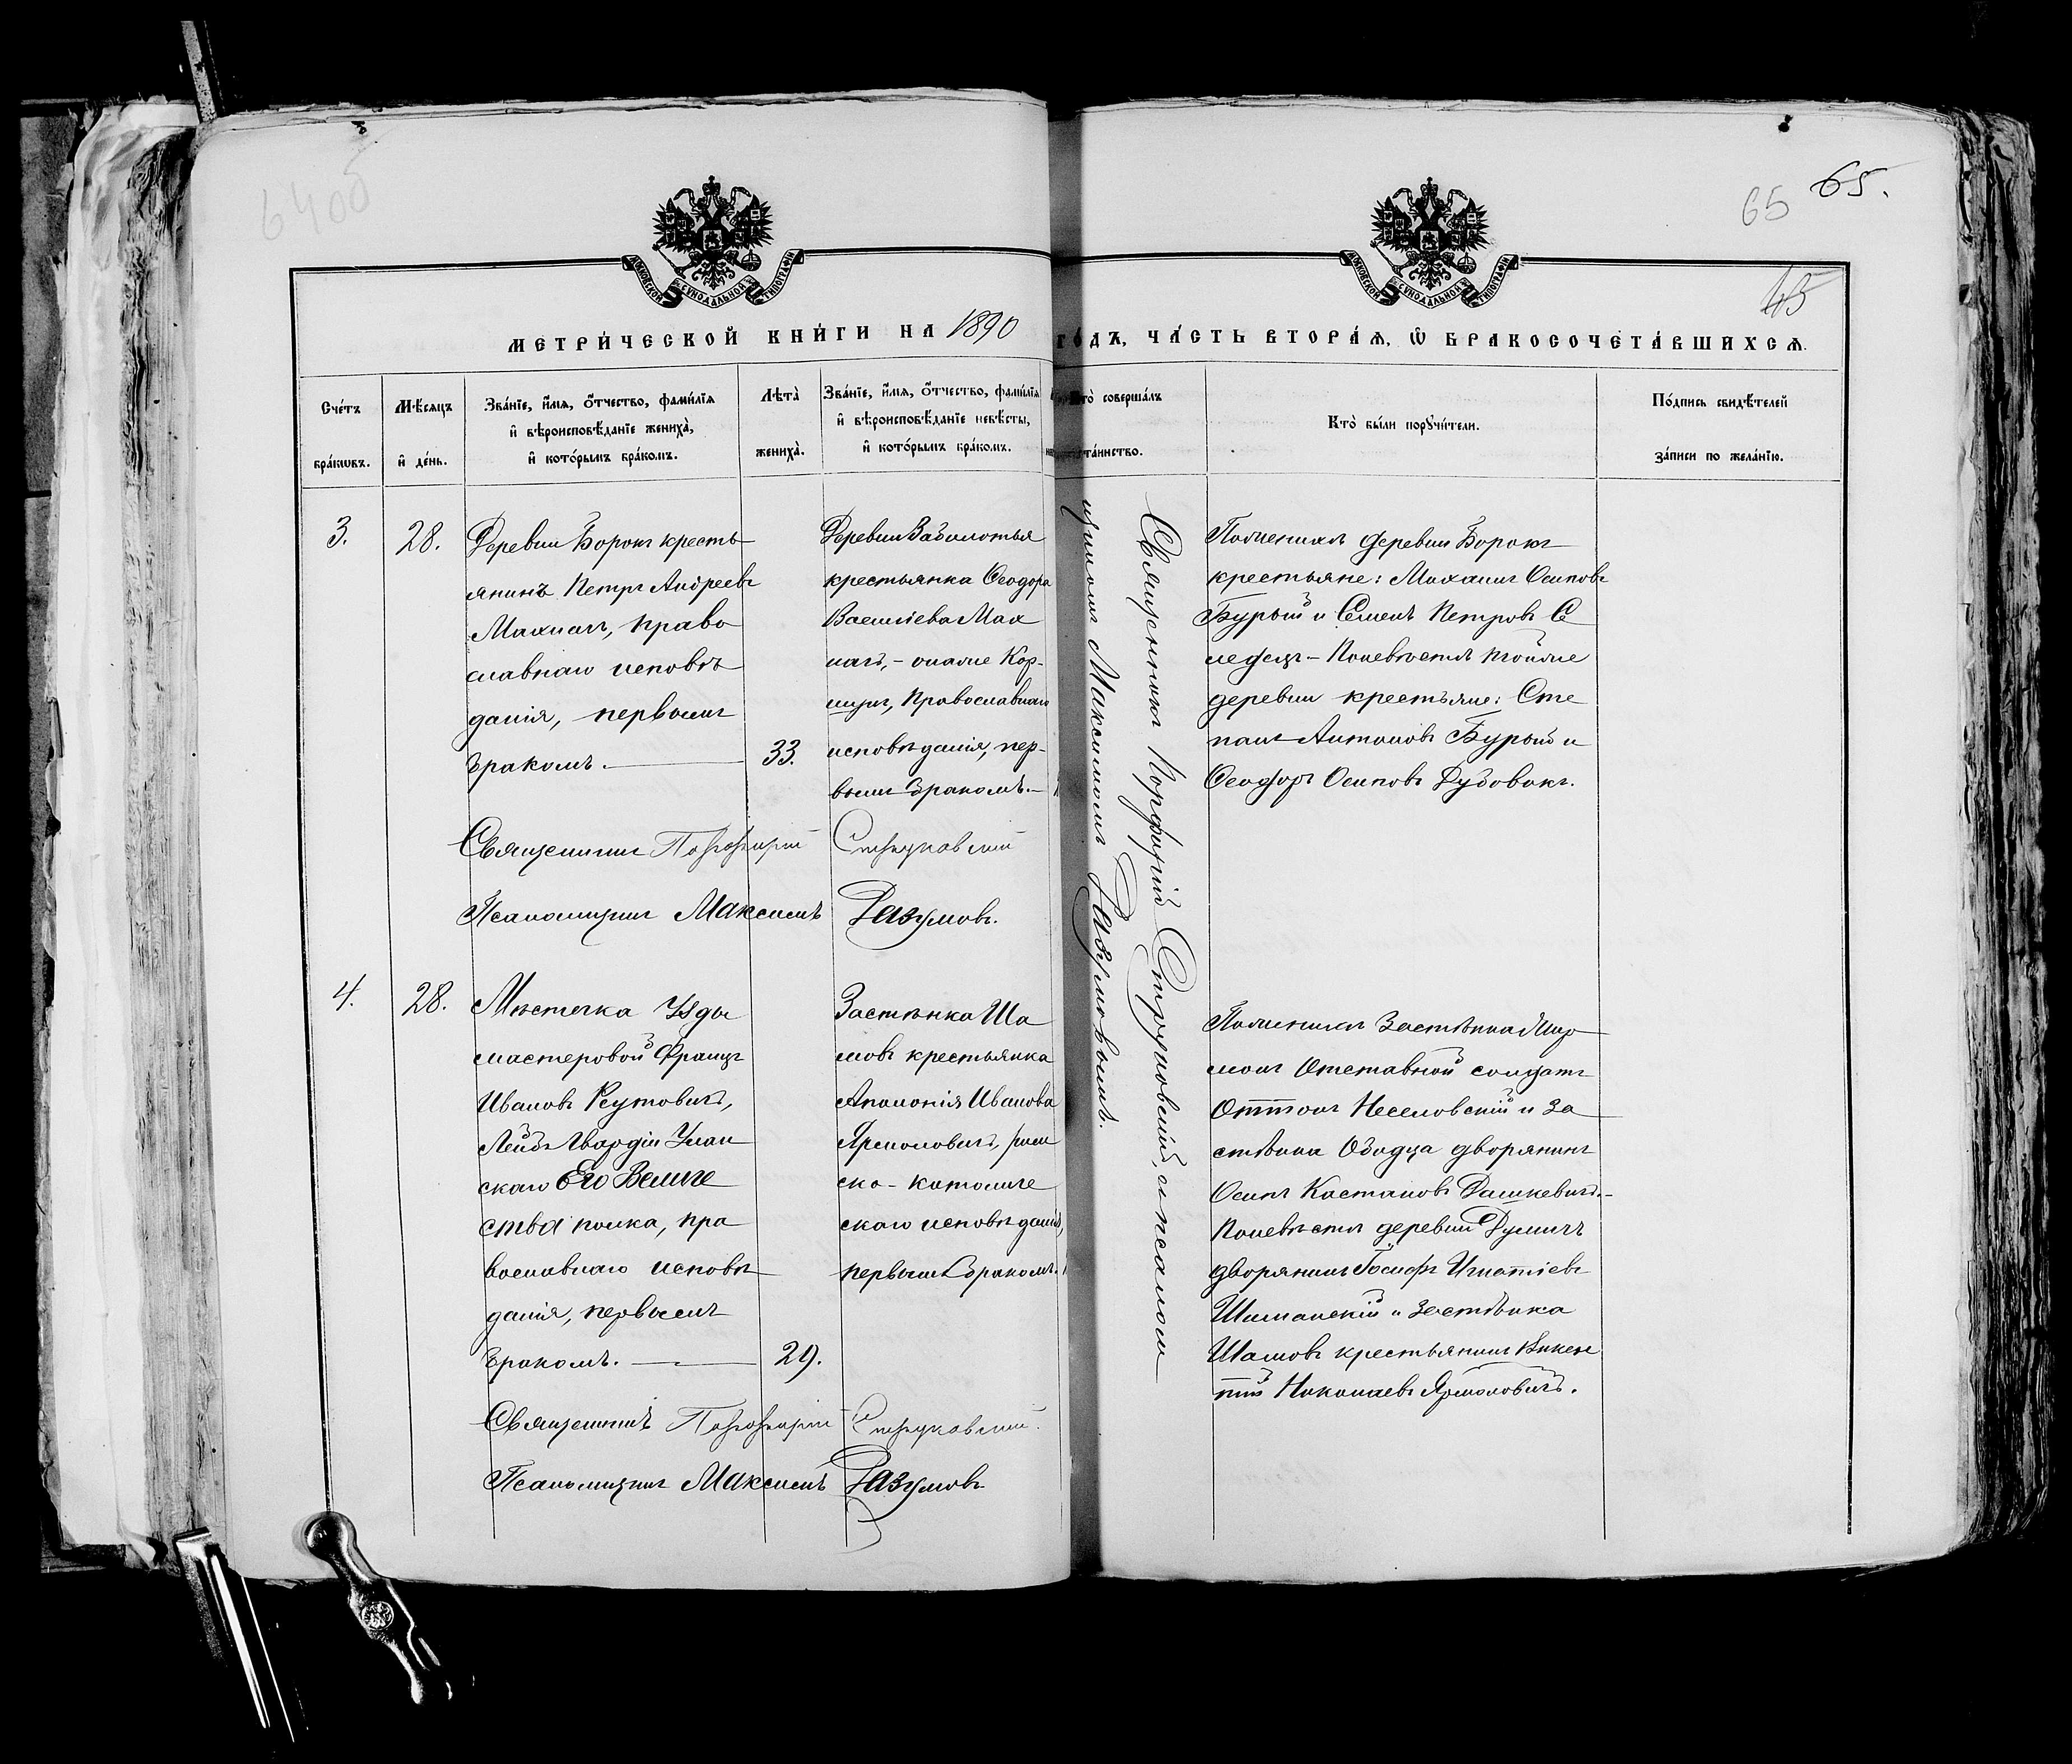 65
65.
45
МОСКОВСКОЙ СѴНОДАЛЬНОЙ ТИПОГРАФІИ
МОСКОВСКОЙ СѴНОДАЛЬНОЙ ТИПОГРАФІИ
МЕТРИ́ЧЕСКОЙ КНИ́ГИ НА 1890 ГО́ДЪ, ЧА́СТЬ ВТОРА́Ѧ, Ѡ҆ БРАКОСОЧЕТА́ВШИХСѦ.
Сче́тъ
бра́кѡвъ.
Мѣ́сѧцъ
и҆ де́нь.
Зва́нїе, и҆́мѧ, ѻ҆́тчество, фами́лїѧ
и҆ вѣроисповѣ́данїе жениха̀,
и҆ кото́рымъ бра́комъ.
Лѣта̀
жениха̀.
Зва́нїе, и҆́мѧ, ѻ҆́тчество, фами́лїѧ
и҆ вѣроисповѣ́данїе невѣ́сты,
и҆ кото́рымъ бра́комъ.
Кто̀ соверша́лъ
та́инство.
Кто̀ бы́ли порꙋчи́тели.
По́дпись свидѣ́телей
за́писи по жела́нїю.
3.
28.
Деревни Борокъ кресть
янинъ Петръ Андреевъ
Махначъ, право
славнаго исповѣ
данія, первымъ
бракомъ.
33.
Деревни Заболотья
крестьянка Ѳеодора
Васильева Мах
начъ,
Православнаго
исповѣданія, пер-
вымъ бракомъ.
Священникъ Порфирій Струковскій, и псалом
щикомъ Максимомъ Разумовымъ.
По женихѣ деревни Борокъ
крестьяне: Михаилъ Осиповъ
Бурый и Семенъ Петровъ Се
ледецъ – По невѣстѣ той же
деревни крестьяне: Сте
панъ Антоновъ Бурый и
Ѳеодоръ Осиповъ Дубовикъ.
Священникъ Порфирій Струковскій
Псаломщикъ Максимъ Разумовъ.
4.
28.
Мѣстечка Узды
мастеровой Францъ
Ивановъ Реутовичъ,
Лейбъ Гвардіи Улан
скаго Его Величе
ства полка, пра
вославнаго исповѣ
данія, первымъ
бракомъ.
29.
Застѣнка Ша
мовъ крестьянка
Аполонія Иванова
Ярмоловичъ, рим
ско-католиче
скаго исповѣданія,
первымъ бракомъ.
По женихѣ застѣнка
Отставной солдатъ
Оттонъ Неселовскій и за
стѣнка Ободца дворянинъ
Осипъ Дашкевичъ.–
По невѣстѣ деревни Думичъ
дворянинъ Іосифъ Игнатіевъ
Шиманскій и застѣнка
Шамовъ крестьянинъ Викен
тій Николаевъ Ярмоловичъ.
Священникъ Порфирій Струковскій.
Псаломщикъ Максимъ Разумовъ